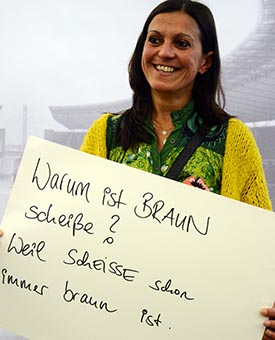 Warum ist BRAUN
scheiße?
Weil SCHEISSE schon
immer braun ist.